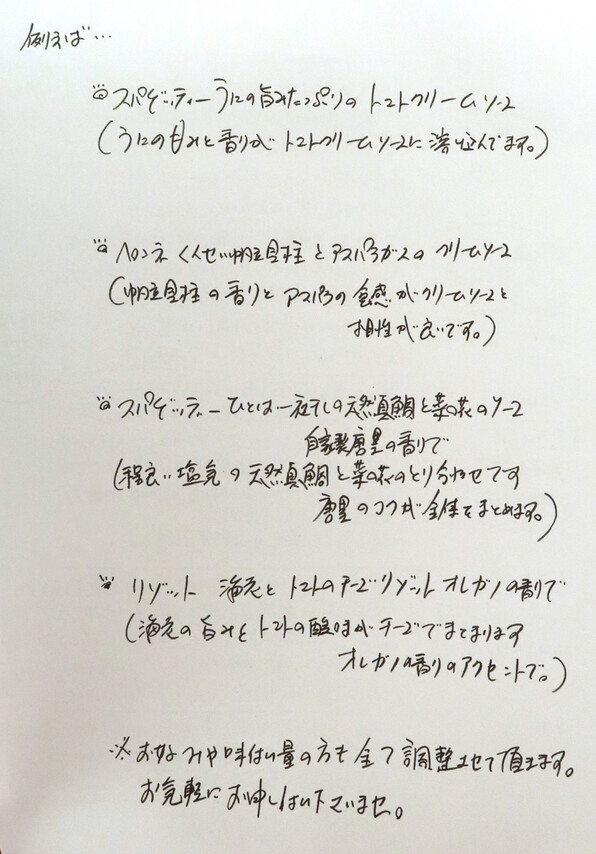 例えば…
スパゲッティー うにの旨みたっぷりの トマトクリームソース
(うにの甘みと香りが トマトクリームソースに溶け込んでます。)
ペンネ くんせい帆立貝柱とアスパラガスの クリームソース
(帆立貝柱の香りと アスパラの食感がクリームソースと
相性が良いです。)
スパゲッティー ひとは一夜干しの天然真鯛と菜の花のソース
自家製唐墨の香りで
(程良い塩気の天然真鯛と菜の花のとり合わせです
唐墨のコクが全体をまとめます。)
リゾット 海老とトマトのチーズリゾット オレガノの香りで
(海老の旨みとトマトの酸味がチーズでまとまります
オレガノの香りのアクセントで。)
※お好みや味付け量の方も全て調整させて頂きます。
お気軽にお申し付け下さいませ。